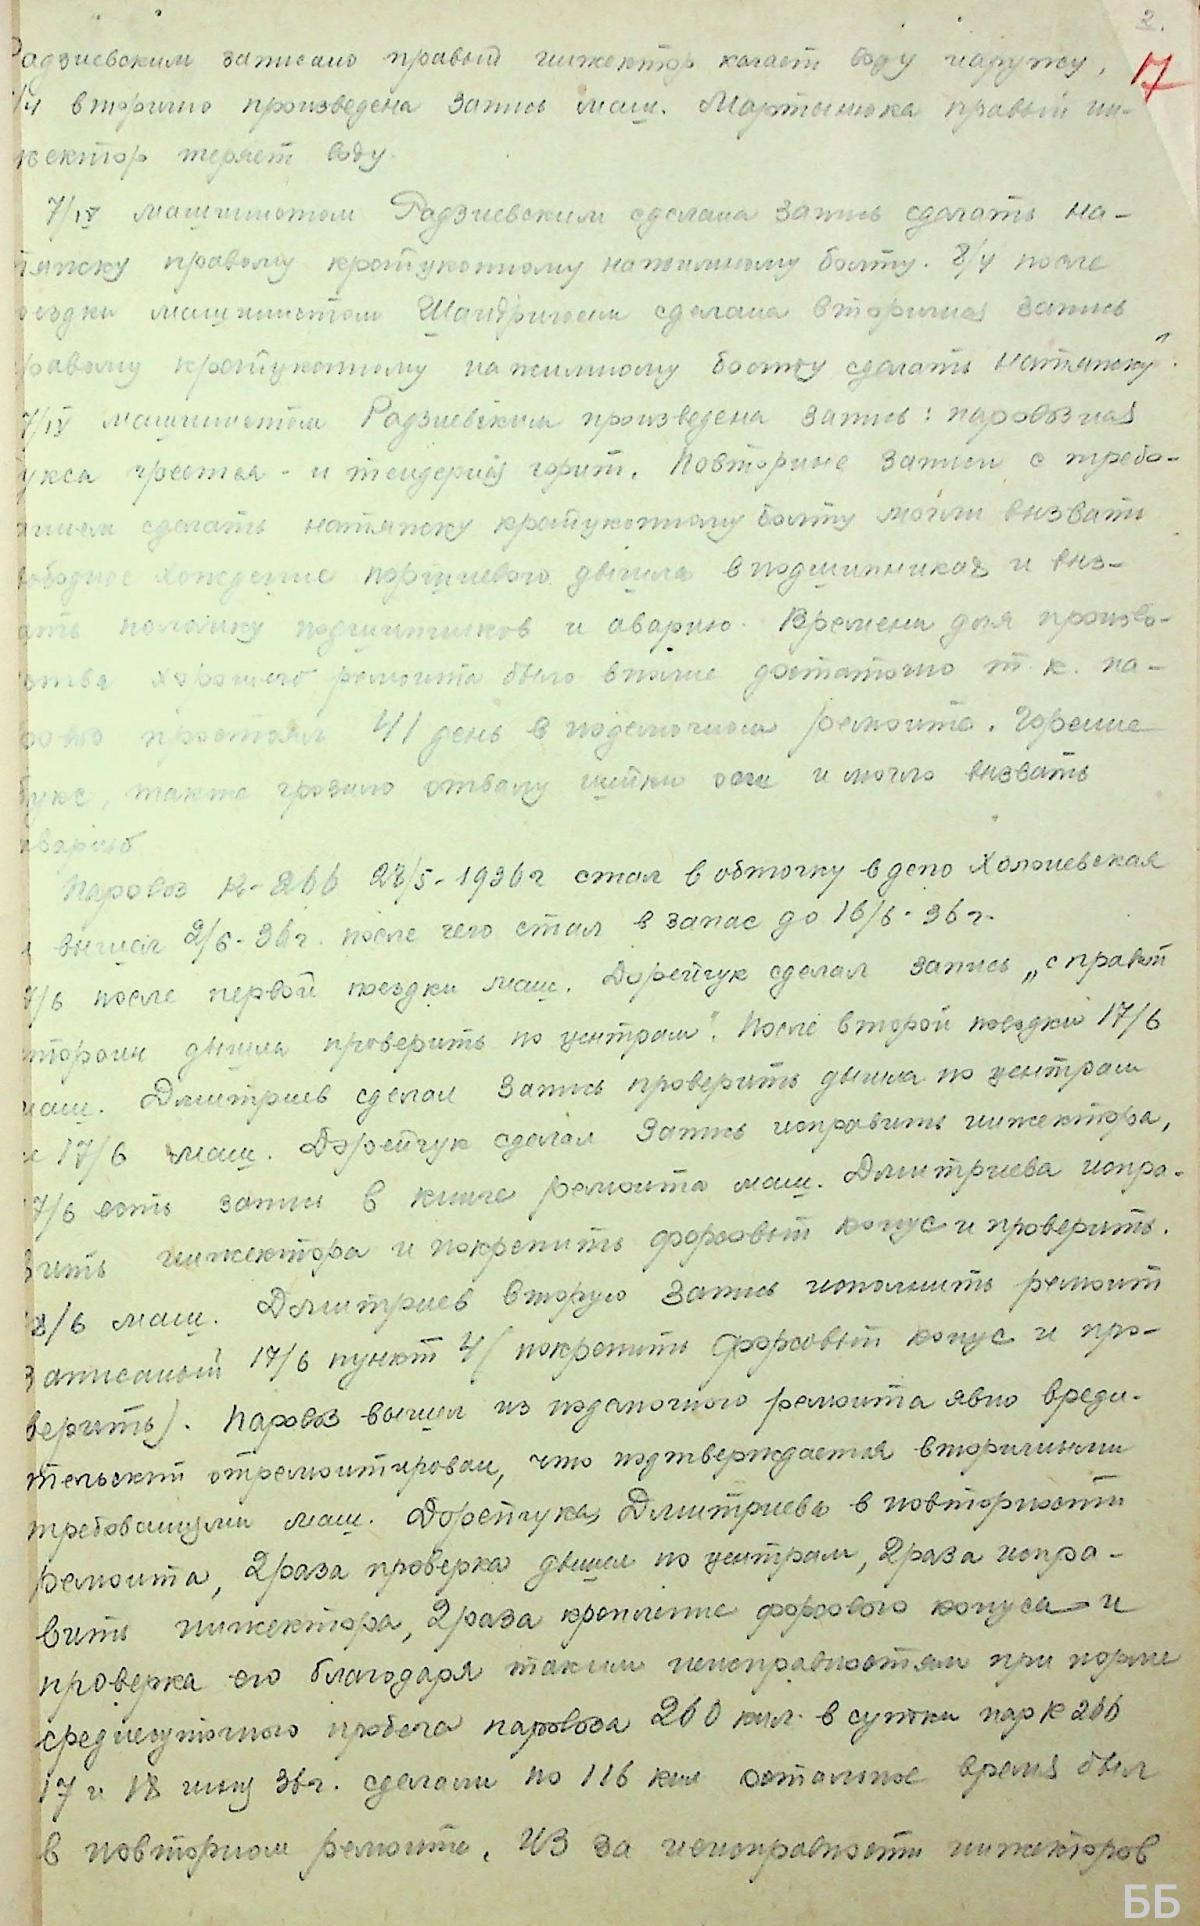 2.
17
Радзиевским записано правый инжектор качает воду наружу,
/4 вторично произведена запись маш. Мартынюка правый ин-
жектор теряет воду.
7/IV машинистом Радзиевским сделана запись сделать на-
тяжку правому крейцкопному нажимному болту. 8/4 после
оездки машинистом сделана вторичная запись
равому крейцкопному нажимному болту сделать натяжку".
7/IV машинистом Радзиевским произведена запись: паровозная
укса греется - и тендерная горит. Повторные записи с требо-
анием сделать натяжку крейцкопному болту могли вызвать
вободное хождение поршневого дышла в подшипниках и выз-
ать поломку подшипников и аварию. Времени для произво-
ства хорошего ремонта было вполне достаточно т.к. па-
ровоз простоял 41 день в подемочном ремонте. Горение
букс, также грозило отвалу шейки оси и могло вызвать
аварию
Паровоз К-266 28/5-1936 г стал в обточку в депо Хойниевская
и вышел 2/6-36 г. после чего стал в запас до 16/6-36 г.
7/6 после первой поездки маш. Дорейчук сделал запись „с правой
стороны дышла проверить по центрам". После второй поездки 17/6
маш. Дмитриев сделал запись проверить дышла по центрам
и 17/6 маш. Дорейчук сделал запись исправить инжектора,
17/6 есть запись в книге ремонта маш. Дмитриева испра-
вить инжектора и покрепить форсовый конус и проверить.
18/6 маш. Дмитриев вторую запись исполнить ремонт
записаный 17/6 пункт 4/ покрепить форсовый конус и про-
верить). Паровоз вышел из подемочного ремонта явно вреди-
тельский отремонтирован, что подтверждается вторичными
требованиями маш. Дорейчука, Дмитриева в повторности
ремонта, 2 раза проверка дышел по центрам, 2 раза испра-
вить инжектора, 2 раза крепление форсового конуса и
проверка его благодаря таким неисправностям при норме
среднесуточного пробега паровоза 260 кил. в сутки пар К 266
17 и 18 июня 36 г. сделали по 116 кил остальное время был
в повторном ремонте. Из за неисправности инжекторов
ББ